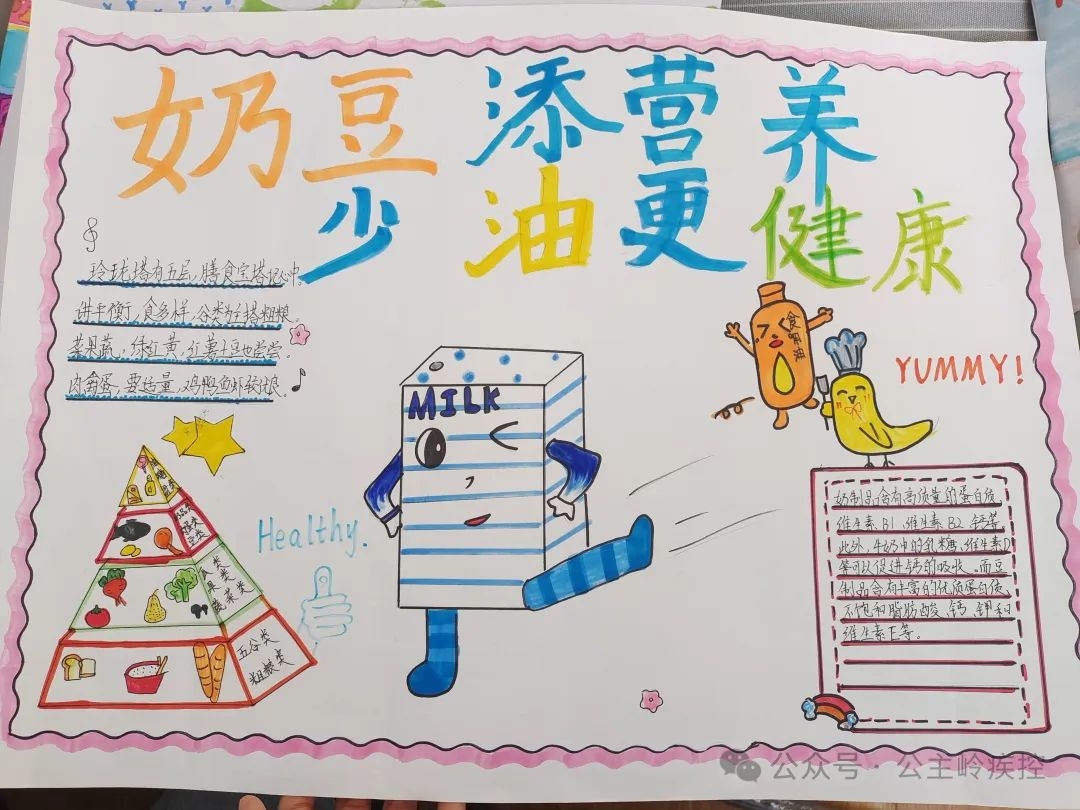 奶豆 添营养
少油更健康
玲珑塔有五层,膳食宝塔记心中。
讲平衡,食多样,谷类为主搭粗粮。
菜果蔬,绿红黄,红薯土豆也尝尝。
肉禽蛋,要适量,鸡鸭鱼虾较优良。
食用油
YUMMY!
MILK
Healthy.
五谷类
粗粮类
奶制品含有高质量的蛋白质,
维生素B1、维生素B2、钙等,
此外,牛奶中的乳糖、维生素D
等可以促进钙的吸收。而豆
制品含有丰富的优质蛋白质
不饱和脂肪酸、钙、钾和
维生素E等。
公众号·公主岭疾控